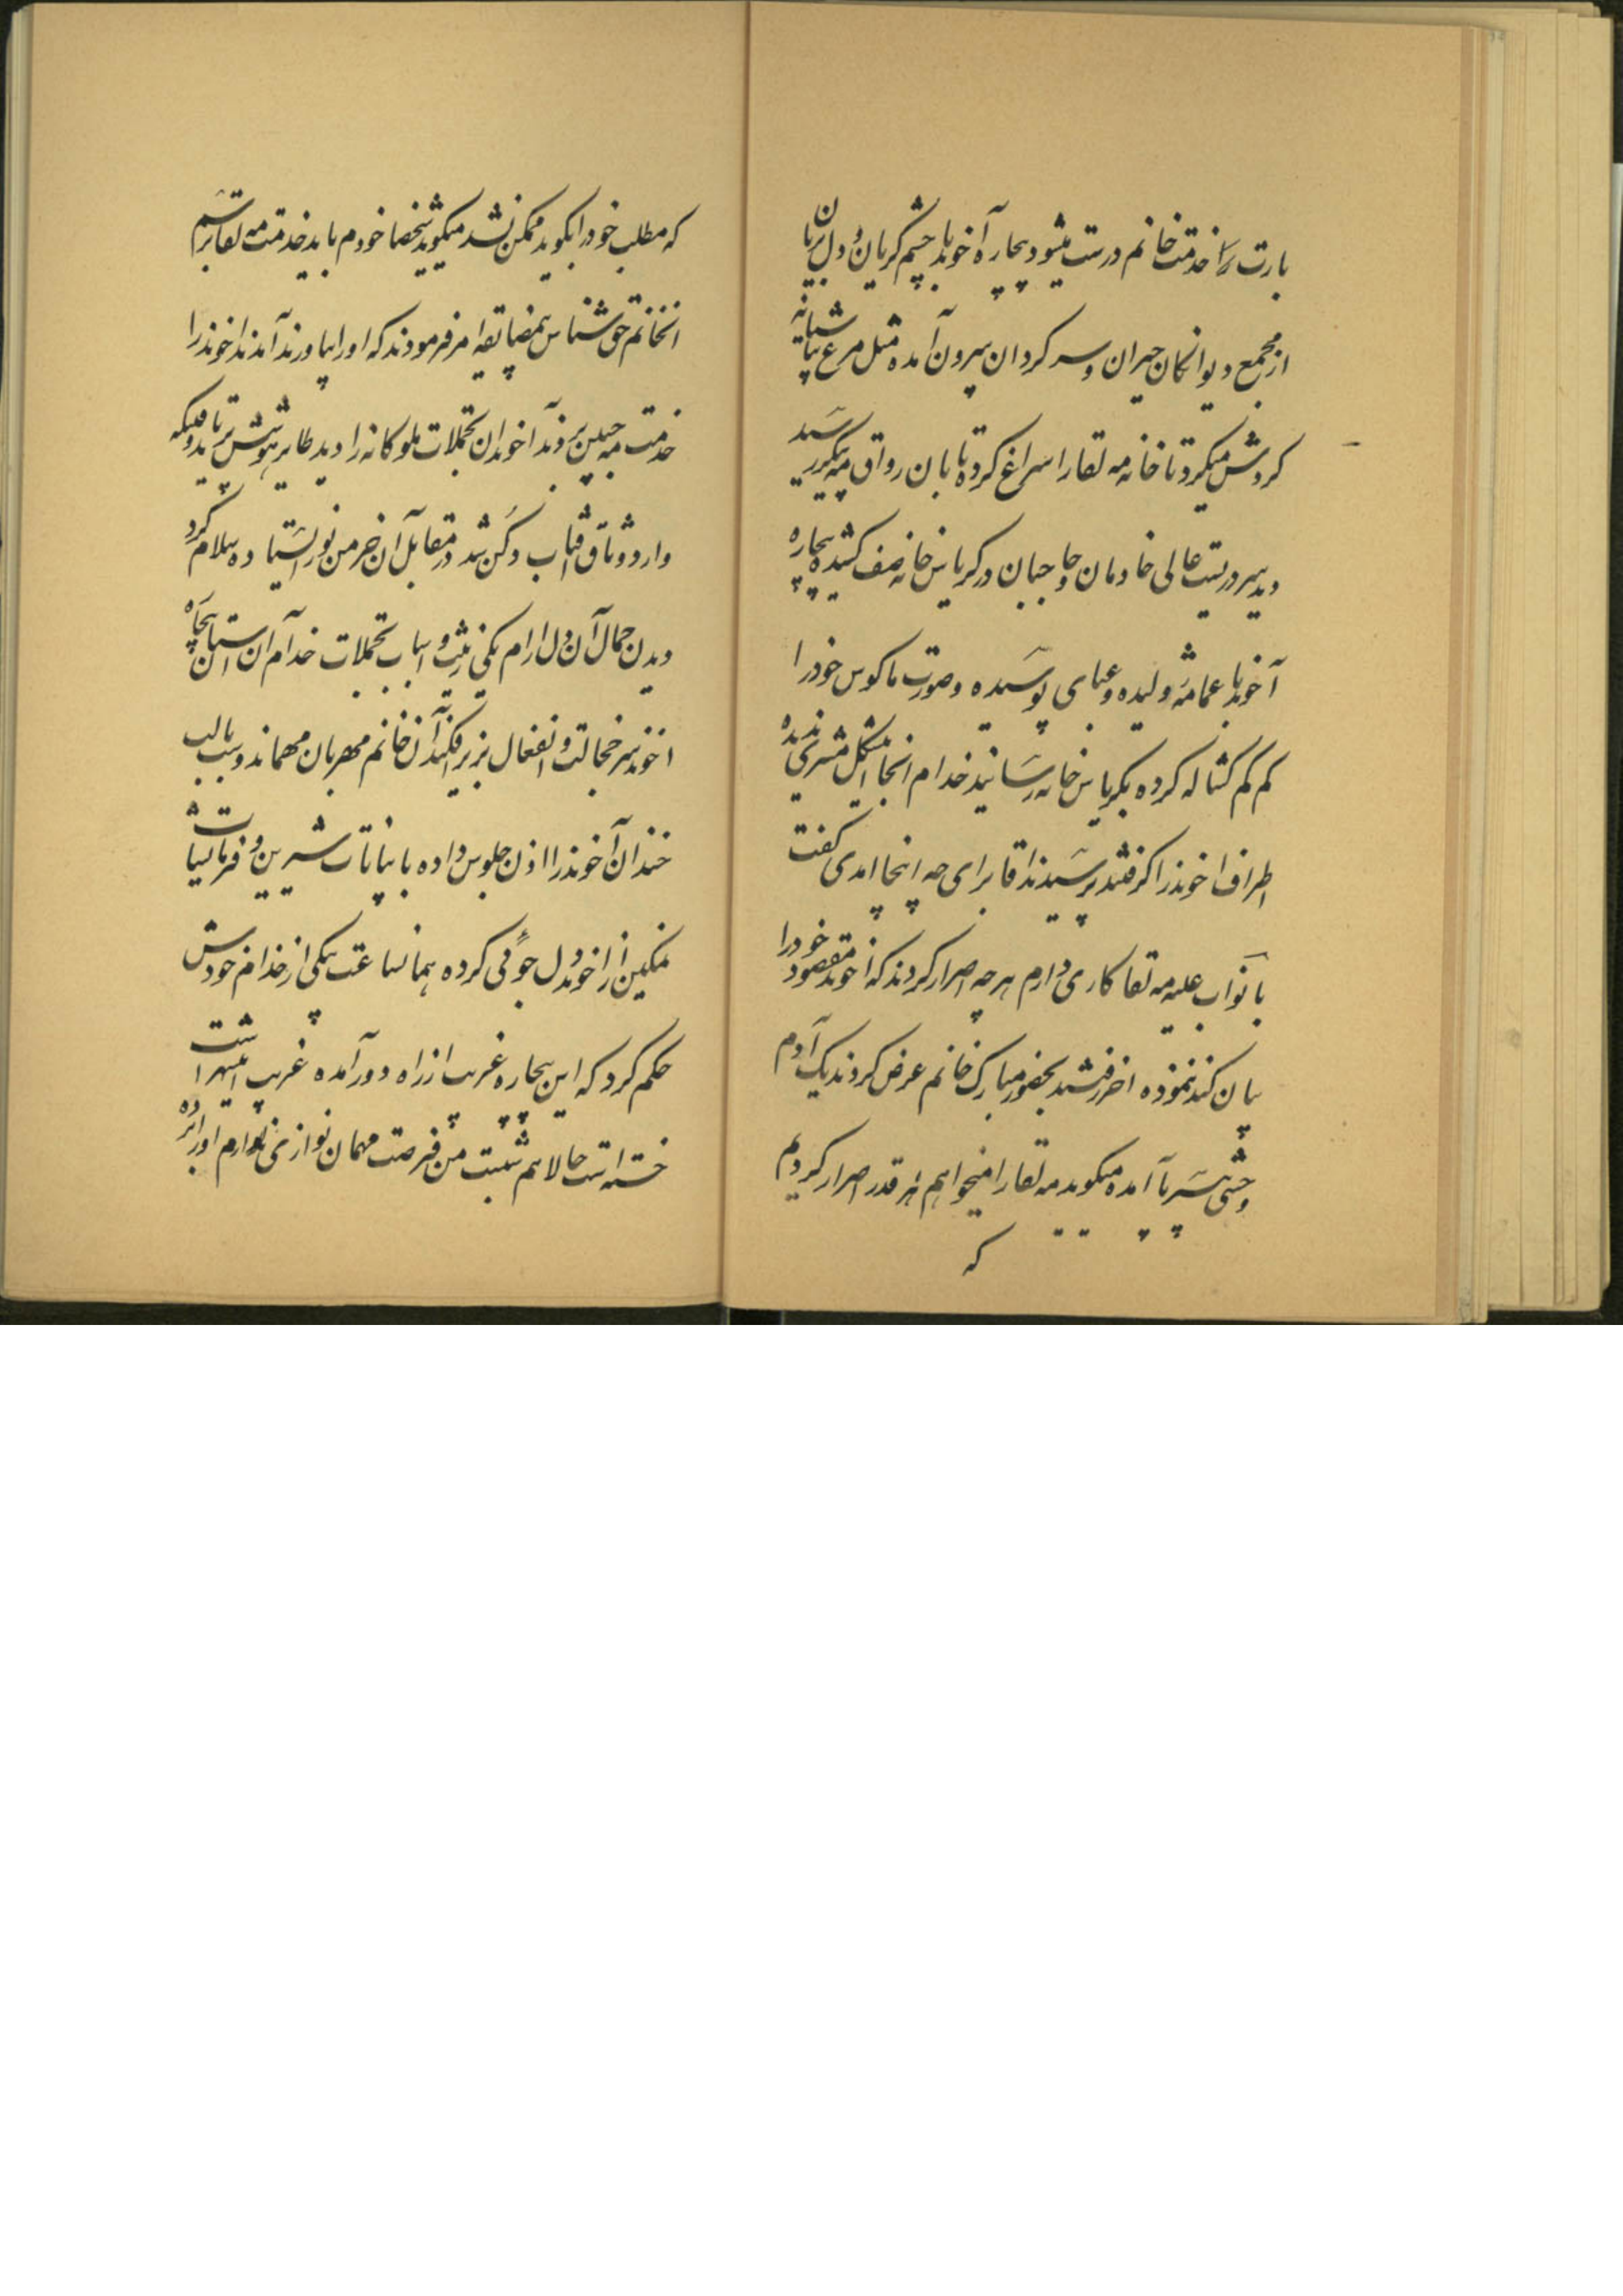 بارت را خدمت خانم درست میشود بیچاره آخوند با چشم گریان و دل بریان
از مجمع دیوانگان حیران و سر گردان بیرون آمده مثل مرغ بی‌آشیانه
گردش میکرد تا خانه مه لقا را سراغ کرده تا بان رواق مه پیکر رسید
دید سر در بیت عالی خادمان و حاجبان در کریاس خانه صف کشیده بیچاره
آخوند با عمامه ژولیده و عبای پوسیده وصورت ماکوس خود را
کم کم کشاله کرده بکریاس خانه رسانید خدام انجا مشکل مشتری ندیده
اطراف اخوند را گرفتند پرسیدند اقا برای چه اینجا امدی گفت
با نواب علیه مه لقا کاری دارم هر چه اصرار کردند که اخوند مقصود خود را
بیان کند ننموده اخر رفتند بحضور مبارک خانم عرض کردند یک آدم
وحشی بی سر پا آمده میگوید مه لقا را میخواهم هر قدر اصرار کردیم
که
که مطلب خود را بگوید ممکن نشد میگوید شخصا خودم باید خدمت مه لقا برسم
انخانم حق شناس بی مضایقه امر فرمودند که او را بیاورند آمدند اخوند را
خدمت مه جبین بردند آخوند ان تجملات ملوکانه را دید طایر هوشش پرید تا وقتیکه
وارد وثاق شد در مقابل آن خرمن نور ایستاده سلام کرد
دیدن جمال آن دل ارام یکی زینت و اسباب تجملات خدام آن استان بیچاره
اخوند سر خجالت و انفعال بزیر افکند آن خانم مهربان مهماندوست با لب
خندان آخوند را اذن جلوس داده با بیانات شیرین و فرمایشات
نمکین از اخوند دل جوئی کرده همانساعت بیکی از خدام خودش
حکم کرد که این بیچاره غریب از راه دور آمده غریب اینشهر است
خسته است حالا هم شبست من فرصت مهمان نوازی ندارم او را برده